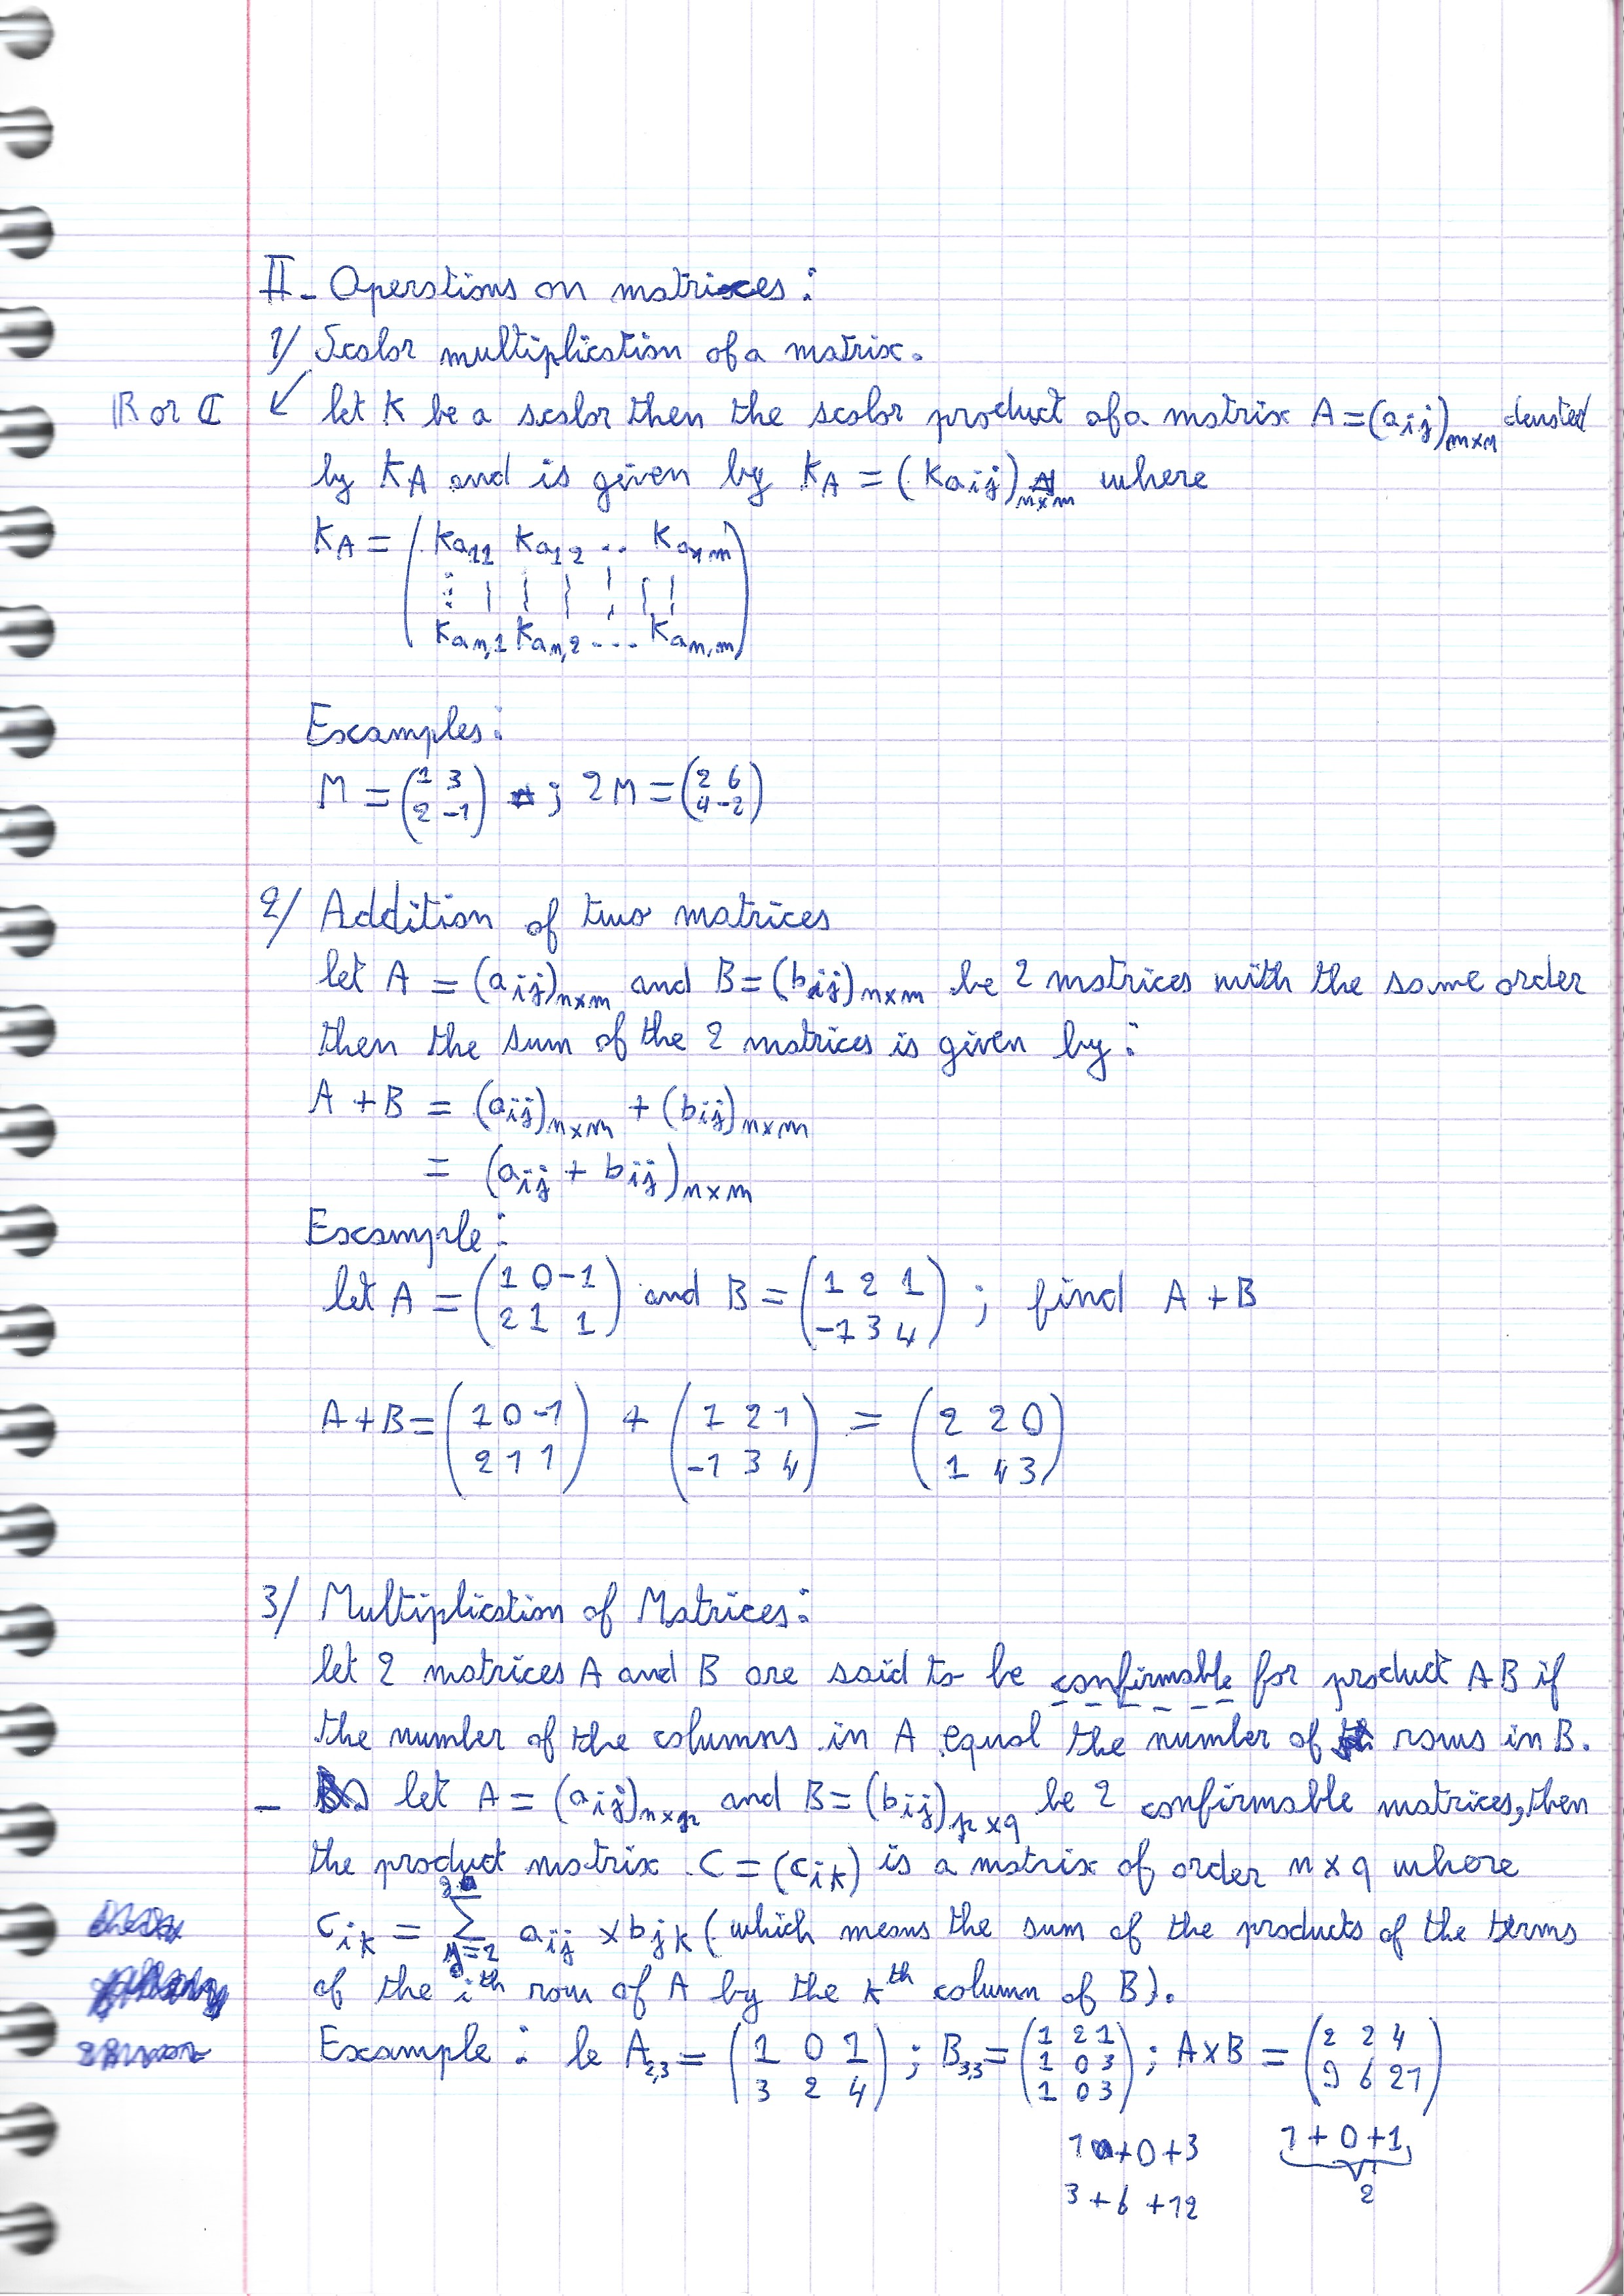 II - Operations on matrices :
1/ Scalar multiplication of a matrix.
R or C ↙ let K be a scalar then the scalar product of a matrix A = (aij)m×n denoted
by KA and is given by KA = (Kaij)n×m where
KA = ( Ka11 Ka12 .. Ka1m
Kan,1 Kan,2 .... Kan,m )
Examples :
M = (1 3
2 -1) ; 2M = (2 6
4 -2)
2/ Addition of two matrices
let A = (aij)n×m and B = (bij)n×m be 2 matrices with the same order
then the sum of the 2 matrices is given by :
A + B = (aij)n×m + (bij)n×m
= (aij + bij)n×m
Example :
let A = (1 0 -1
2 1 1) and B = (1 2 1
-1 3 4) ; find A + B
A + B = (1 0 -1
2 1 1) + (1 2 1
-1 3 4) = (2 2 0
1 4 3)
3/ Multiplication of Matrices :
let 2 matrices A and B are said to be confirmable for product AB if
the number of the columns in A equal the number of rows in B.
- let A = (aij)n×p and B = (bij)p×q be 2 confirmable matrices, then
the product matrix C = (cik) is a matrix of order n × q where
cik = Σ aij × bjk (which means the sum of the products of the terms
of the ith row of A by the kth column of B).
Example : le A2,3 = (1 0 1
3 2 4) ; B3,3 = (1 2 1
1 0 3
1 0 3) ; A×B = (2 2 4
9 6 21)
1 + 0 + 3
1 + 0 + 1
2
3 + 6 + 12